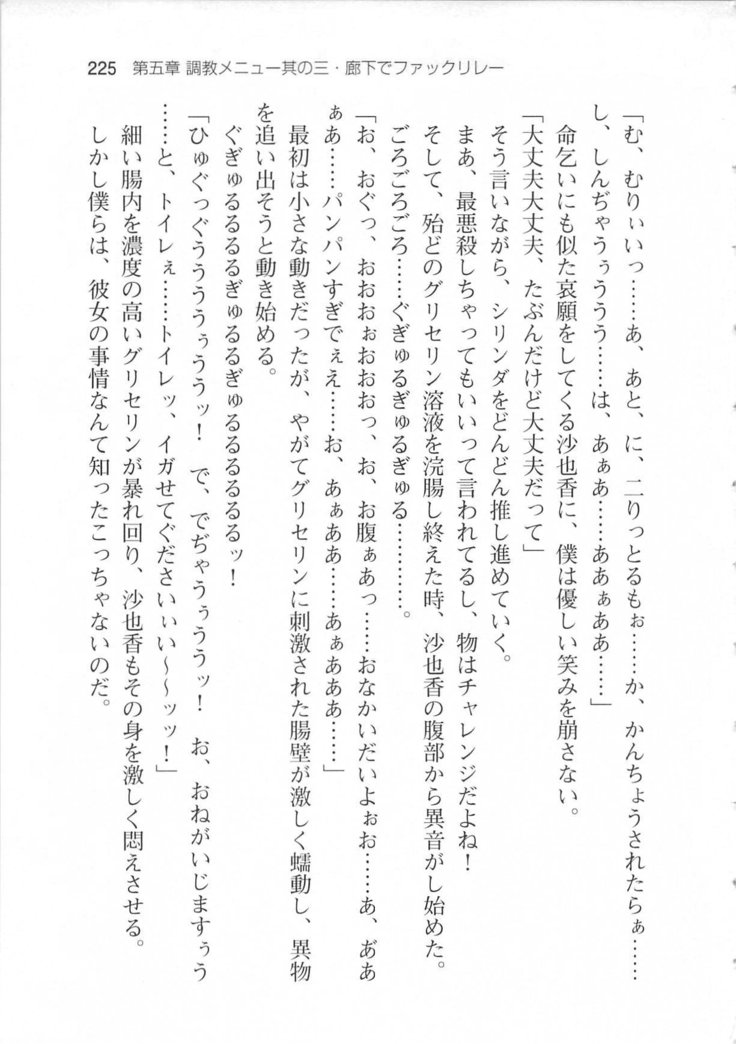 225 第五章 調教メニュー其の三・廊下でファックリレー
「む、むりぃいっ……あ、あと、に、二りっとるもぉ……か、かんちょうされたらぁ……
し、しんぢゃうぅううう……は、あぁあ……ああぁああ……」
命乞いにも似た哀願をしてくる沙也香に、僕は優しい笑みを崩さない。
「大丈夫大丈夫、たぶんだけど大丈夫だって」
そう言いながら、シリンダをどんどん推し進めていく。
まあ、最悪殺しちゃってもいいって言われてるし、物はチャレンジだよね！
そして、殆どのグリセリン溶液を浣腸し終えた時、沙也香の腹部から異音がし始めた。
ごろごろごろ……ぐぎゅるぎゅるぎゅる…………。
「お、おぐっ、おおおぉおおおっ、お、お腹ぁあっ……おなかいだいよぉお……あ、あ゛あ
ぁあ……パンパンすぎでぇえ……お、あぁああ……あぁあああ……」
最初は小さな動きだったが、やがてグリセリンに刺激された腸壁が激しく蠕動し、異物
を追い出そうと動き始める。
ぐぎゅるるるるぎゅるるぎゅるるるるるるッ！
「ひゅぐっぐぅうううぅううッ！　で、でぢゃうぅううッ！　お、おねがいじますぅう
……と、トイレぇ……トイレッ、イガせてぐださいぃい～～ッッ！」
細い腸内を濃度の高いグリセリンが暴れ回り、沙也香もその身を激しく悶えさせる。
しかし僕らは、彼女の事情なんて知ったこっちゃないのだ。